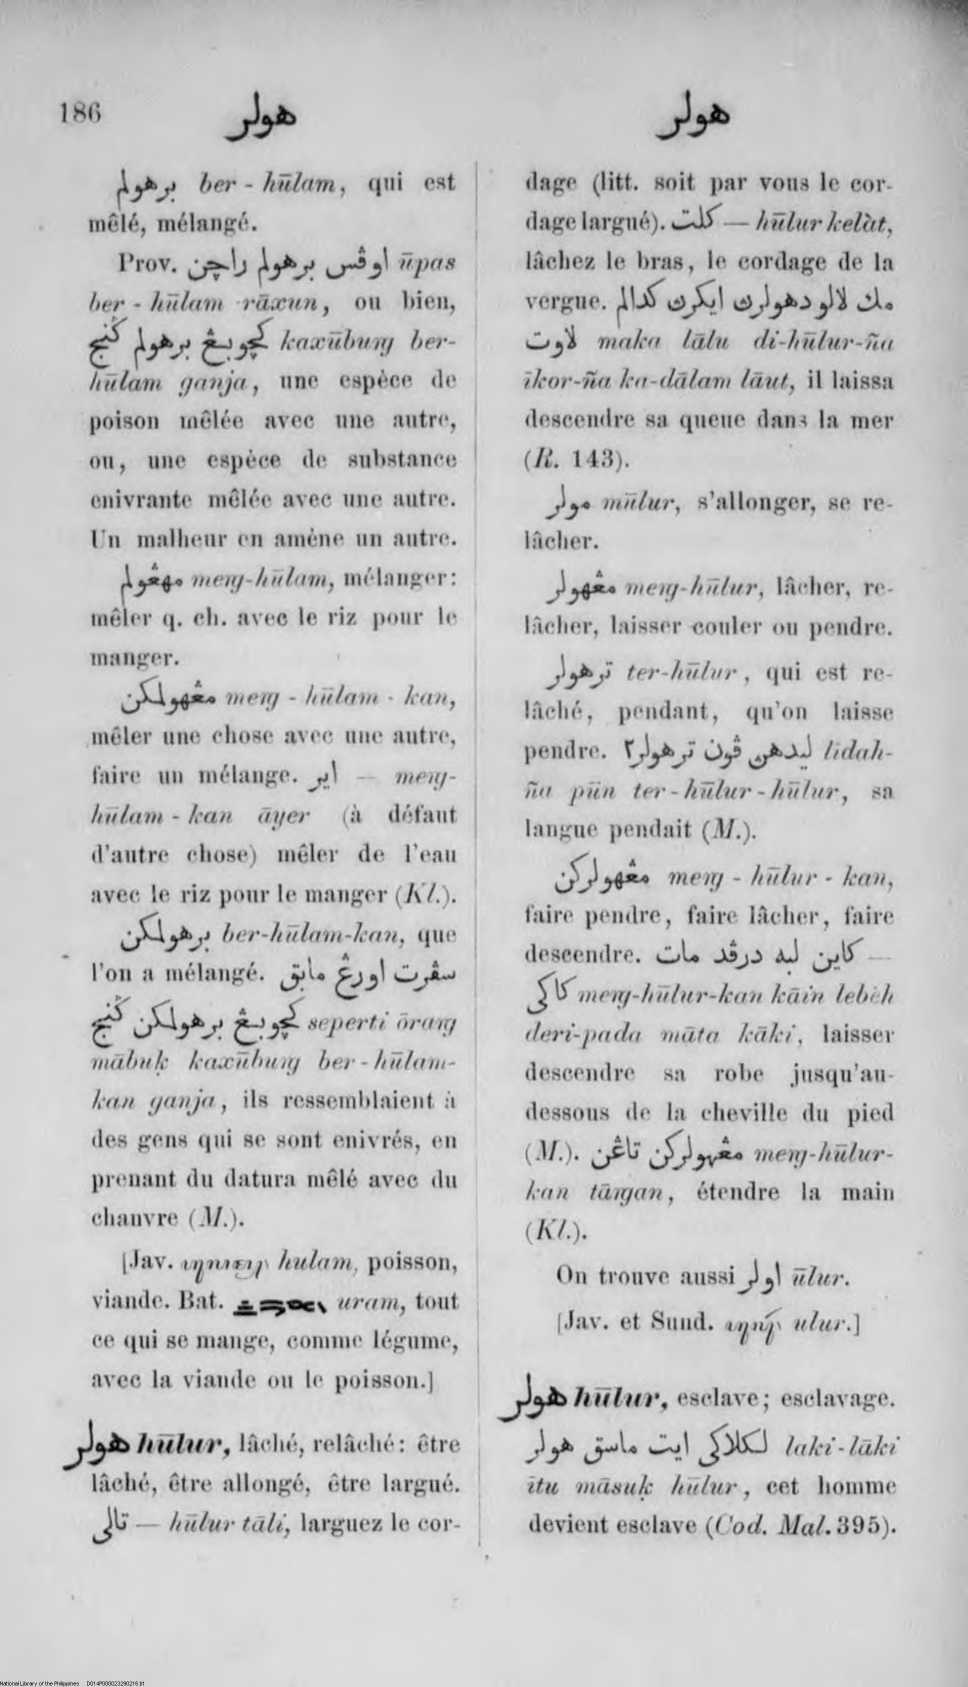 186
هولر
هولر
برهولم ber - hūlam, qui est
mêlé, mélangé.
Prov. اوڤس برهولم راچن ūpas
ber - hūlam rāxun, ou bien,
کچوبڠ برهولم گنج kaxūbuṅg ber-
hūlam ganja, une espèce de
poison mêlée avec une autre,
ou, une espèce de substance
enivrante mêlée avec une autre.
Un malheur en amène un autre.
مهڠولم meṅg-hūlam, mélanger:
mêler q. ch. avec le riz pour le
manger.
مڠهولمکن meṅg - hūlam - kan,
mêler une chose avec une autre,
faire un mélange. اير — meṅg-
hūlam - kan āyer (à défaut
d'autre chose) mêler de l'eau
avec le riz pour le manger (Kl.).
برهولمکن ber-hūlam-kan, que
l'on a mélangé. سڤرت اورڠ مابق
کچوبڠ برهولمکن گنج seperti ōraṅg
mābuḳ kaxūbuṅg ber - hūlam-
kan ganja, ils ressemblaient à
des gens qui se sont enivrés, en
prenant du datura mêlé avec du
chanvre (M.).
[Jav. hulam, poisson,
viande. Bat. uram, tout
ce qui se mange, comme légume,
avec la viande ou le poisson.]
هولر hūlur, lâché, relâché: être
lâché, être allongé, être largué.
تالى — hūlur tāli, larguez le cor-
dage (litt. soit par vous le cor-
dage largué). کلت — hūlur kelàt,
lâchez le bras, le cordage de la
vergue. مك لالو دهولرڽ ايکرڽ کدالم
لاوت maka lālu di-hūlur-ña
īkor-ña ka-dālam lāut, il laissa
descendre sa queue dans la mer
(R. 143).
مولر mūlur, s'allonger, se re-
lâcher.
مڠهولر meṅg-hūlur, lâcher, re-
lâcher, laisser couler ou pendre.
ترهولر ter-hūlur, qui est re-
lâché, pendant, qu'on laisse
pendre. ليدهڽ ڤون ترهولر٢ līdah-
ña pūn ter - hūlur - hūlur, sa
langue pendait (M.).
مڠهولرکن meṅg - hūlur - kan,
faire pendre, faire lâcher, faire
descendre. کاين لبه درڤد مات —
کاکى meṅg-hūlur-kan kāin lebèh
deri-pada māta kāki, laisser
descendre sa robe jusqu'au-
dessous de la cheville du pied
(M.). مڠهولرکن تاڠن meṅg-hūlur-
kan tāṅgan, étendre la main
(Kl.).
On trouve aussi اولر ūlur.
[Jav. et Sund. ulur.]
هولر hūlur, esclave; esclavage.
لکلاکى ايت ماسق هولر laki-lāki
ītu māsuḳ hūlur, cet homme
devient esclave (Cod. Mal. 395).
National Library of the Philippines